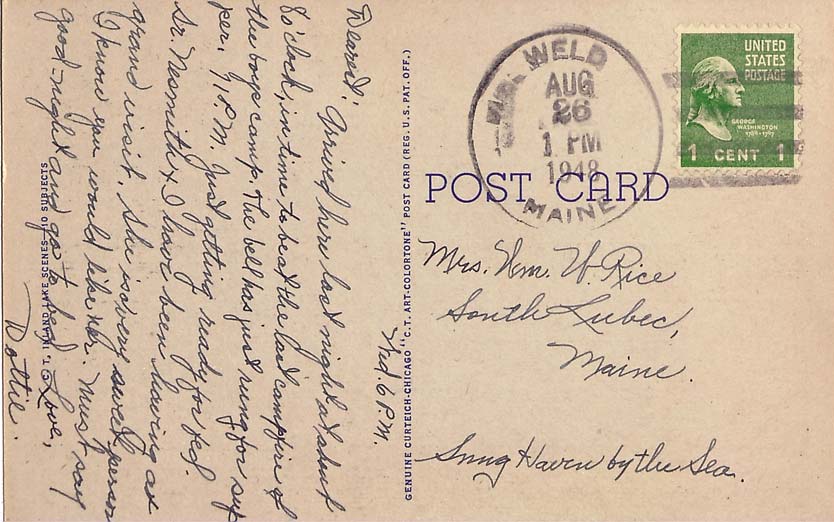 Wed. 6 P.M.
Dearest: Arrived here last night at about
8 o'clock, in time to be at the last campfire of
the boys camp. The bell has just rung for sup
per. 9/18 P.M. Just getting ready for bed.
Sr. Nesmith & I have been having a
grand visit. She is a very sweet person
I know you would like her. Must say
good-night and go to bed. Love,
Dottie.
C. T. INLAND LAKE SCENES—10 SUBJECTS
GENUINE CURTEICH-CHICAGO "C.T. ART-COLORTONE" POST CARD (REG. U.S. PAT. OFF.)
WELD
AUG
26
1 PM
1948
MAINE
UNITED
STATES
POSTAGE
GEORGE
WASHINGTON
1789-1797
1 CENT 1
POST CARD
Mrs. Wm. W. Rice
South Lubec,
Maine.
Snug Haven by the Sea.